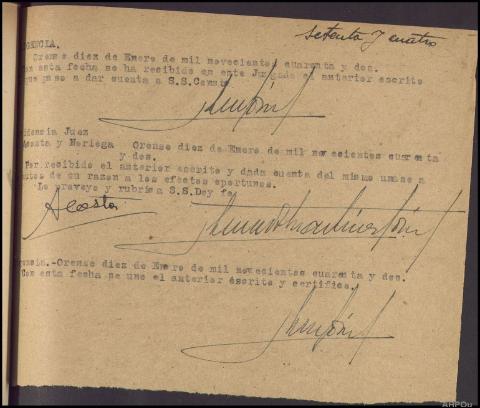 setenta y cuatro
GENCIA.
Orense diez de Enero de mil novecientos cuarenta y dos.
Con esta fecha se ha recibido en este Juzgado el anterior escrito
que paso a dar cuenta a S.S.
idencia Juez
Acosta y Noriega Orense diez de Enero de mil novecientos cuarenta
y dos.
Por recibido el anterior escrito y dada cuenta del mismo unase a
autos de su razon a los efectos oportunos.
Lo proveyo y rubrica S.S.Doy fe.
Acosta
encia.-Orense diez de Enero de mil novecientos cuarenta y dos.
Con esta fecha se une el anterior escrito y certifico.
AHPOu